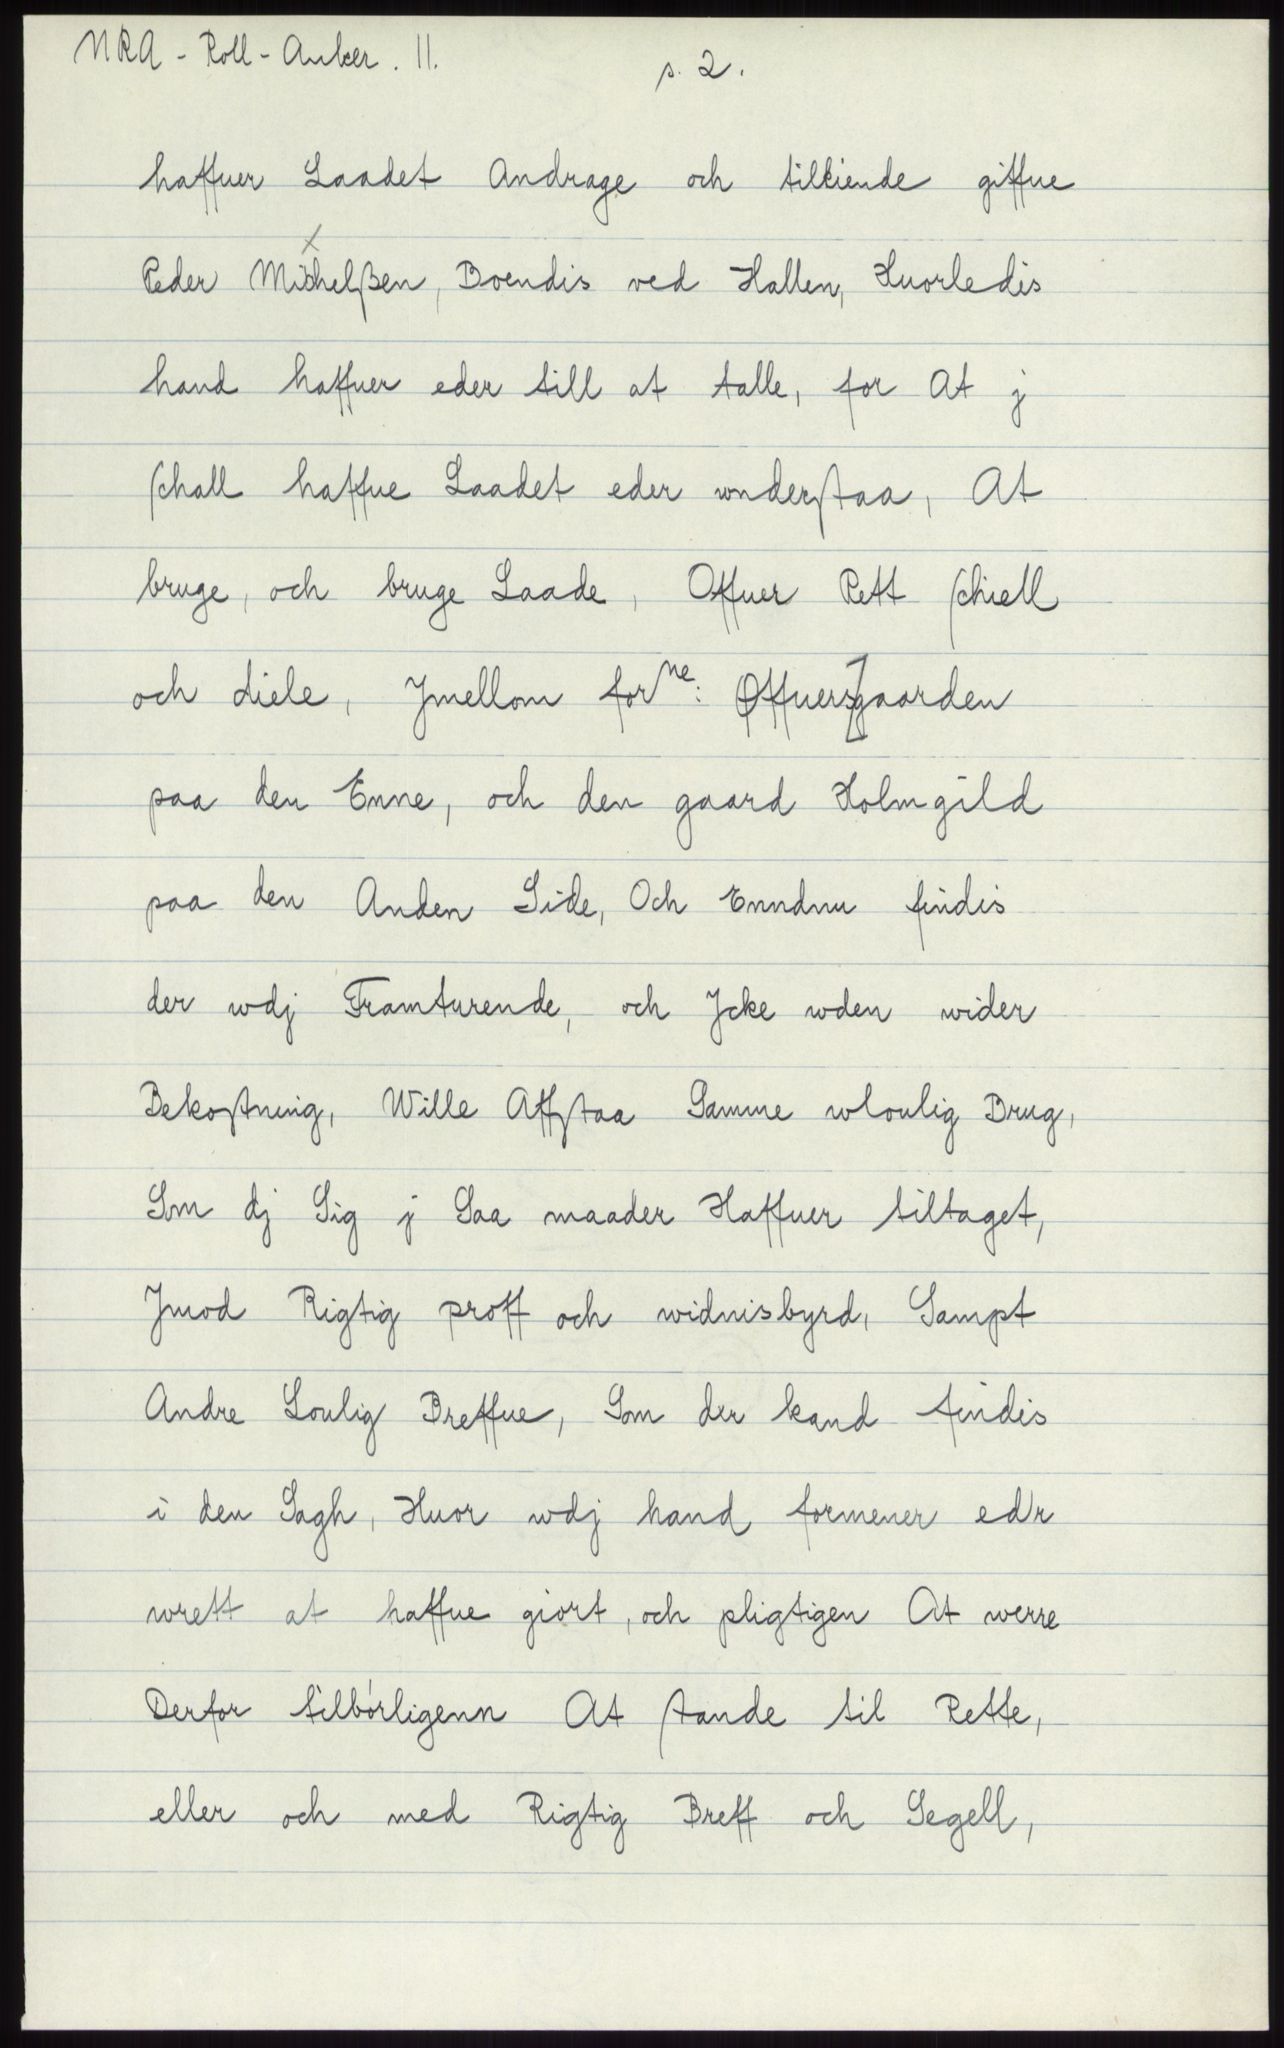 NRA - Roll - Anker. 11.
s. 2.
haffuer Laadet Andrage och tilkiende giffue
x
Peder Michelßen, Boendis ved Hallen, Huorledis
hand haffuer eder till at talle, for At j
schall haffue Laadet eder wnderstaa, At
bruge, och bruge Laade, Offuer Rett schiell
och diele, Jmellom forne: Øffuersgaarden
paa den Enne, och den gaard Holmgild
paa den Anden Side, Och Enndnu findis
der wdj Framturende, och Jcke wden wider
Bekostning, Wille Affstaa Samme wloulig Brug,
Som dj Sig j Saa maader Haffuer tiltaget,
Jmod Rigtig proff och widnisbyrd, Sampt
Andre Loulig Breffue, Som der kand findis
i den Sagh, Huor wdj hand formener ed'r
wrett at haffue giort, och pligtigen At werre
Derfor tilbórligenn At stande til Rette,
eller och med Rigtig Breff och Segell,